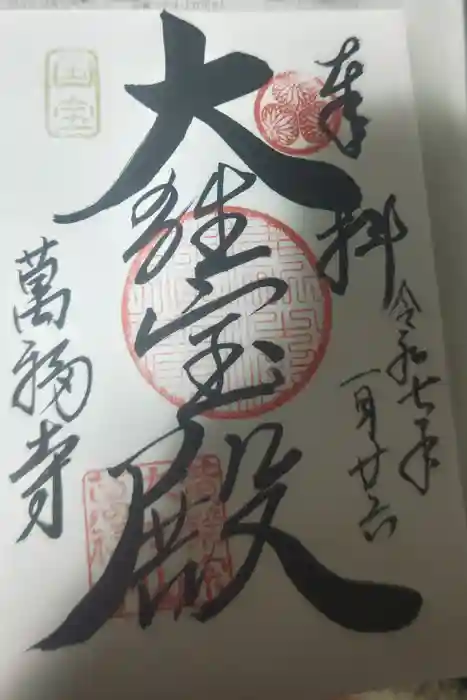 奉拝
令和七年
一月廿六
大雄宝殿
萬福寺